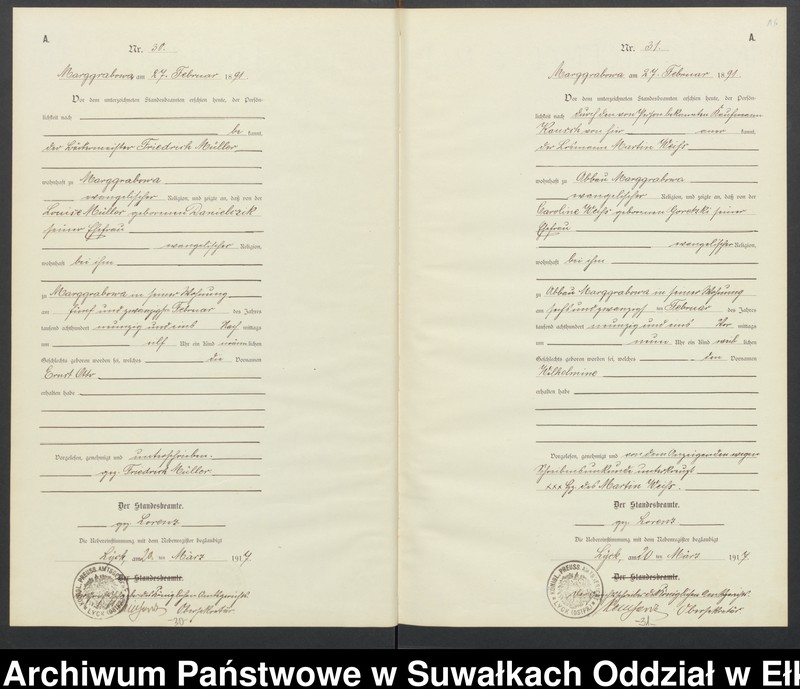 A.
Nr. 30.
Marggrabowa am 27. Februar 1891.
Vor dem unterzeichneten Standesbeamten erschien heute, der Persön-
lichkeit nach
be kannt,
der Bäckermeister Friedrich Müller
wohnhaft zu Marggrabowa
evangelischer Religion, und zeigte an, daß von der
Louise Müller geborenen Danielczik
seiner Ehefrau
evangelischer Religion,
wohnhaft bei ihm
zu Marggrabowa in seiner Wohnung
am fünf und zwanzigsten Februar des Jahres
tausend achthundert neunzig und eins Nach mittags
um elf Uhr ein Kind männlichen
Geschlechts geboren worden sei, welches die Vornamen
Ernst Otto
erhalten habe
Vorgelesen, genehmigt und unterschrieben.
gez. Friedrich Müller
Der Standesbeamte.
gez. Lorenz
Die Uebereinstimmung mit dem Nebenregister beglaubigt
Lyck, am 20. ten März 1917.
Der Standesbeamte.
Obersekretär.
-30-
A.
Nr. 31.
Marggrabowa am 27. Februar 1891.
Vor dem unterzeichneten Standesbeamten erschien heute, der Persön-
lichkeit nach durch den von Person bekannten Kaufmann
von hier aner kannt,
der Losmann Martin Weiss
wohnhaft zu Abbau Marggrabowa
evangelischer Religion, und zeigte an, daß von der
Caroline Weiss geborenen Gorotzki seiner
Ehefrau
evangelischer Religion,
wohnhaft bei ihm
zu Abbau Marggrabowa in seiner Wohnung
am sechs und zwanzigsten Februar des Jahres
tausend achthundert neunzig und eins Vor mittags
um neun Uhr ein Kind weib lichen
Geschlechts geboren worden sei, welches den Vornamen
Wilhelmine
erhalten habe
Vorgelesen, genehmigt und von dem Anzeigenden wegen
Schreibensunkunde unterkreuzt
xxx Hz. des Martin Weiss.
Der Standesbeamte.
gez. Lorenz
Die Uebereinstimmung mit dem Nebenregister beglaubigt
Lyck, am 20 ten März 1917.
Der Standesbeamte.
Obersekretär.
-31-
Archiwum Państwowe w Suwałkach Oddział w Ełk